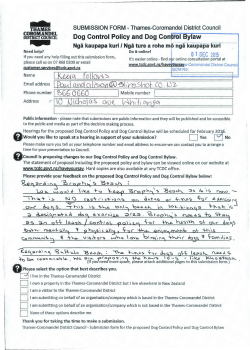 THAMES-
COROMANDEL
DISTRICT COUNCIL
SUBMISSION FORM - Thames-Coromandel District Council
Dog Control Policy and Dog Control Bylaw
Ngā kaupapa kurī / Ngā ture a rohe mō ngā kaupapa kurī
Need help?
If you need any help filling out this submission form,
please call us on 07 868 0200 or email
customer.services@tcdc.govt.nz
Do it online?
It's easier online - find our online consultation portal at
www.tcdc.govt.nz/haveyoursay
01 DEC 2015
Name
Email address
Phone number
8660660
Mobile number
Address
10 Nicholas ave Whitianga
Public information - please note that submissions are public information and they will be published and be accessible
to the public and media as part of the decision making process.
Hearings for the proposed Dog Control Policy and Dog Control Bylaw will be scheduled for February 2016.
Would you like to speak at a hearing in support of your submission?
Yes
No
Please make sure you fill out your telephone number and email address to ensure we can contact you to arrange a
time for your presentation to Council.
Council is proposing changes to our Dog Control Policy and Dog Control Bylaw.
The statement of proposal including the proposed policy and bylaw can be viewed online on our website at
www.tcdc.govt.nz/haveyoursay. Hard copies are also available at any TCDC office.
Please provide your feedback on the proposed Dog Control Policy and Dog Control Bylaw below:
Regarding Brophy's Beach:
We would like to keep Brophy's Beach as it is now -
That is NO restrictions on dates or times for exercising
our dogs. This is the only beach in Whitianga that is
a designated dog exercise area. Brophy's needs to stay
as an off leash/control policy for the health of our dogs
both mentally & physically, for the enjoyment of this
community & the visitors who love bringing their dogs & families.
Regarding Buffalo Beach: The times for off leash needs
to be reasonable
(If you need more space, please attach additional pages to this submission form.)
Please select the option that best describes you.
I live in the Thames-Coromandel District
I own a property in the Thames-Coromandel District but I live elsewhere in New Zealand
I am a visitor to the Thames-Coromandel District
I am submitting on behalf of an organisation/company which is based in the Thames-Coromandel District
I am submitting on behalf of an organisation/company which is not based in the Thames-Coromandel District
None of these options describe me
Thank you for taking the time to make a submission.
Thames-Coromandel District Council - Submission form for the proposed Dog Control Policy and Dog Control Bylaw